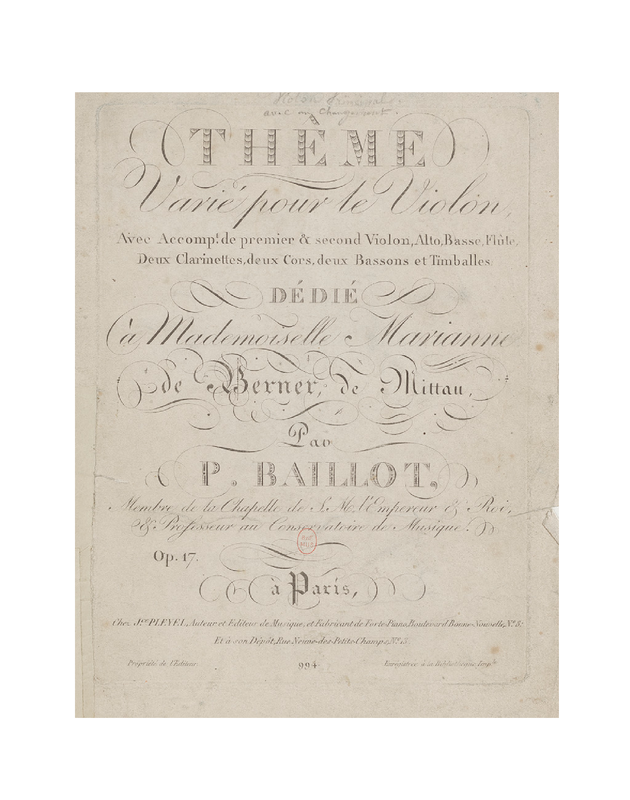 avec un Changement.
THÊME
Varié pour le Violon,
Avec Accomp.t de premier & second Violon, Alto, Basse, Flûte,
Deux Clarinettes, deux Cors, deux Bassons et Timballes
DÉDIÉ
à Mademoiselle Marianne
de Berner, de Mittau,
Par
P. BAILLOT,
Membre de la Chapelle de S. M. l'Empereur & Roi,
& Professeur au Conservatoire de Musique.
Op. 17.
à Paris,
Chez J.ce PLEYEL, Auteur et Editeur de Musique, et Fabricant de Forte-Piano, Boulevard Bonne-Nouvelle, N.o 8;
Et à son Dépôt, Rue Neuve-des-Petits-Champs, N.o 13.
Propriété de l'Editeur.
994.
Enregistrée à la Bibliothèque Imp.le